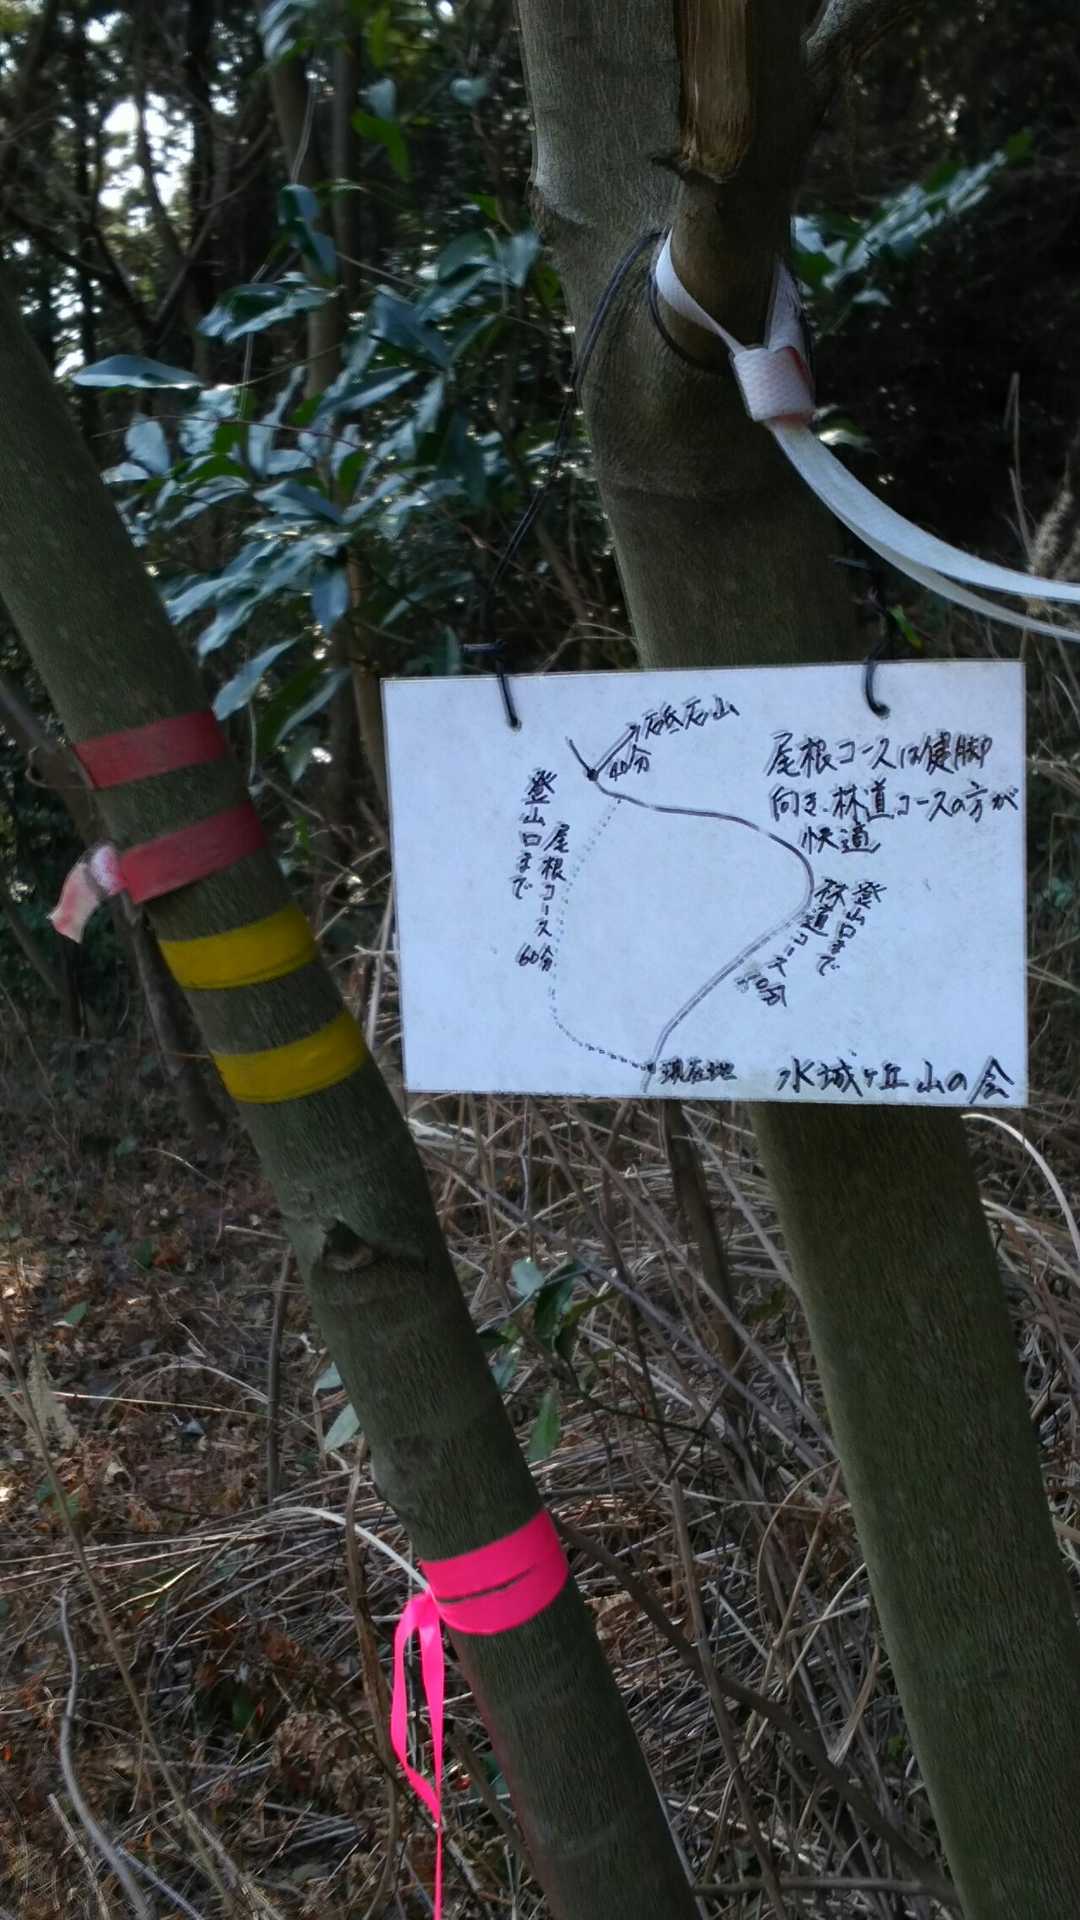 砥石山
40分
尾根コースは健脚
向き、林道コースの方が
快適
登山口まで
尾根コース
60分
登山口まで
林道コース
50分
現在地
水城ヶ丘山の会